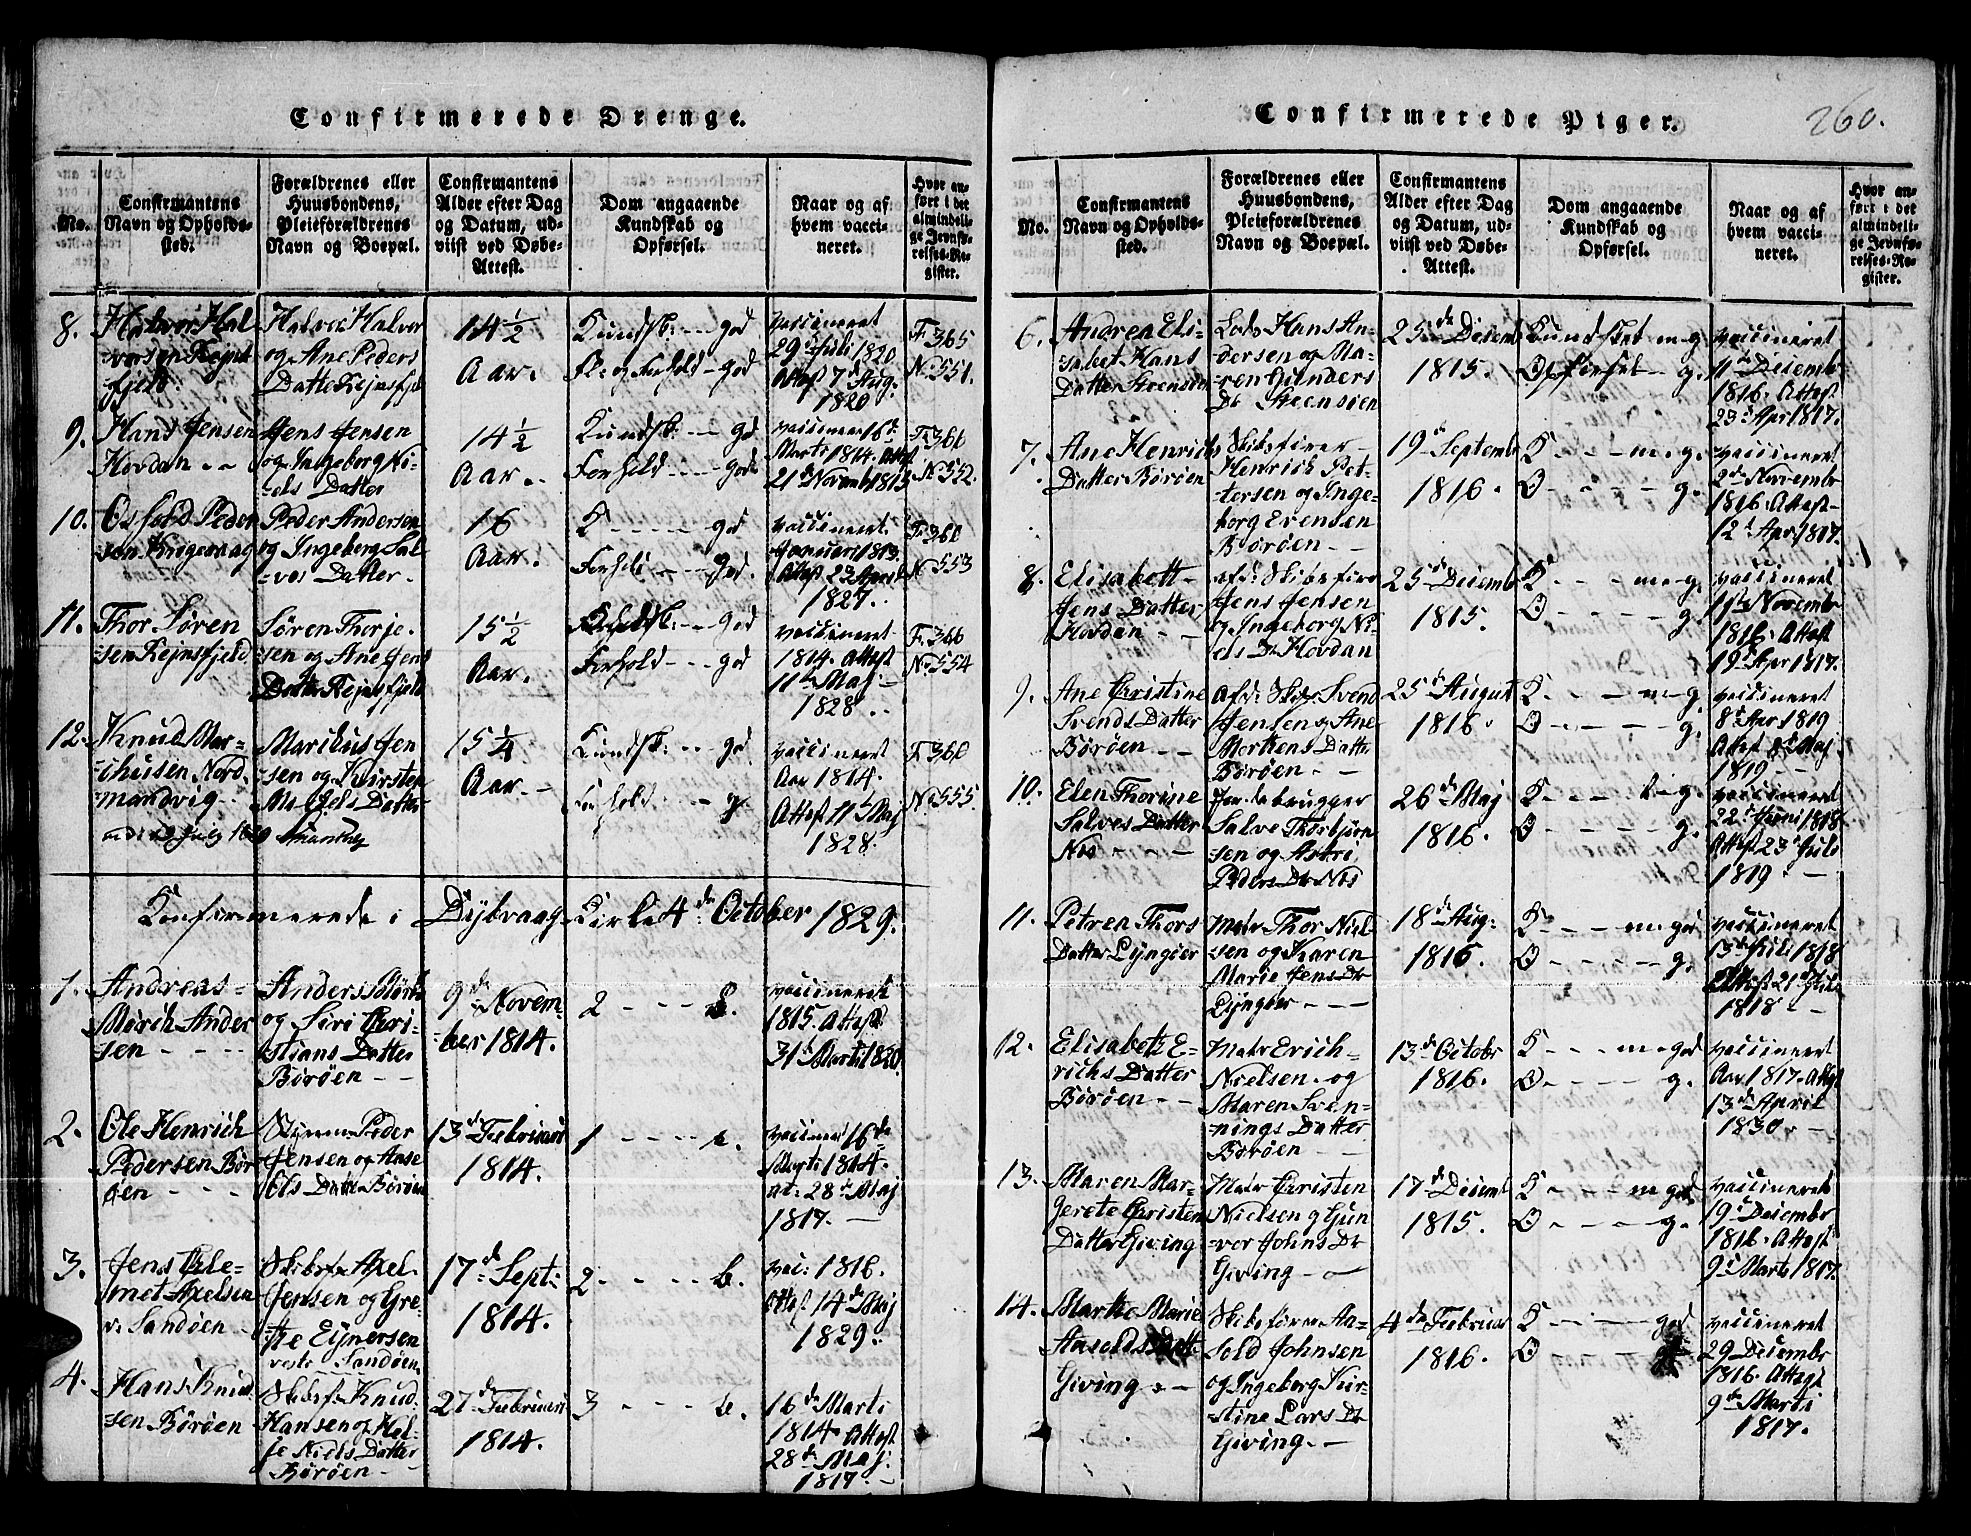 Confirmerede Drenge.
No.
Confirmantens
Navn og Opholds-
sted.
Forældrenes eller
Huusbondens,
Pleieforældrenes
Navn og Boepæl.
Confirmantens
Alder efter Dag
og Datum, ud-
viist ved Døbe-
Attest.
Dom angaaende
Kundskab og
Opførsel.
Naar og af
hvem vacci-
neret.
Hvor an-
ført i det
almindeli-
ge Jevnfø-
relses-Re-
gister.
8.
Halvor Hal
vorsen
Halvor Halvor
og Ane Peders
Datter
14 1/2
Aar.
Kundsk: -- god
Fl: og Forhold - god
vaccineret
29 d Juli 1820.
Attest 7 d Aug.
1820
F. 365
No. 551.
9.
Hans Jensen
Hovdan --
Jens Jensen
og Ingeborg Ni-
-els Datter
14 1/2
Aar.
Kundsk: -- gd
Forhold --- gode
Marti 1814. Attest
21 d Novemb 1815
F. 366
No. 552.
10.
Osfold Peder
sen Krogevaag
Peder Anderson
og Ingeborg Sal
-ves Datter.
16
Aar.
K ---- god
Forhold --- god.
vaccineret
Januari 1813.
Attest 23 April
1827.
F. 360
No. 553
11.
Thor Søren
sen
Søren Thorje-
sen og Ane Jens
Datter
15 1/2
Aar.
Kundsk: -- God
Forhold --- god
vaccineret
1814. Attest
11 te Maj
1828.
F. 366
No. 554
12.
Knud Mar-
-chusen Nord
mandvig
Markus Jen
-sen og Kirsten
Datter
15 1/4
Aar.
Kundsk: -- gd
Forhold. --- g
vaccineret
Aar 1814.
Attest 11 Maj
1828.
F. 360
No. 555.
Konfirmerede i Dybvaag Kirke 4 de October 1829.
1.
Andreas
Mørch Ander
sen ----
Anders Mørk
og Siri Chri-
-stians Datter
Børøen --
9 de Novem-
-ber 1814.
2 ---
vaccineret
1815. Attest
31 Marti 1820.
2.
Ole Henrich
Pedersen Bør
øen ---
Peder
Jensen og Aase
Ols Datt Børøen
13 d Februari
1814.
1 ----
vaccineret 16 de
Marti 1814.
at: 28 d Maj
1817. -
3.
Jens Cle-
-met Axelsen
v. Sandøen
Skibsf. Axel
Jensen og Gre-
-the Ejnersen
Sandøen
17 de Sept:
1814.
2 ---- b.
vac: 1816.
Attest 14 de Maj
1829.
4.
Hans Knud
sen Børøen
Skibsf. Knud
Hansen og Hel-
je Niels Datter
Børøen -
27 de Februari
1814.
3 ----
16 de Marti
1814. Attest
28 d Maj
1817. -
Confirmerede Piger.
260.
No.
Confirmantens
Navn og Opholds-
sted.
Forældrenes eller
Huusbondens,
Pleieforældrenes
Navn og Boepæl.
Confirmantens
Alder efter Dag
og Datum, ud-
viist ved Døbe-
Attest.
Dom angaaende
Kundskab og
Opførsel.
Naar og af
hvem vacci-
neret.
Hvor an-
ført i det
almindeli-
ge Jevnfø-
relses-Re-
gister.
6.
Andrea Eli-
sabet Hans
Datter Steensøn
Lods Hans An-
-dersen og Ma-
-ren Gunders
Dr Steensøen
25 de Decemb
1815.
Kundskab m-g
Opførsel - g.
vaccineret
11 te Decembr
1816. Attest
23 d Apr 1817.
7.
Ane Henrichs
Datter Børøen
Skibsfører
Henrich Pet-
tersen og Inge-
borg Evensen
Børøen --
19 d Septembr
1816.
K --- m-g.
O ---- g.
vaccineret
2 de November
1816. Attest
12 d Apr 1817.
8.
Elisabett
Jens Datter
Hovdan --
afd: Skibsføre
Jens Jensen
og Ingeborg Ni-
els Dr Hovdan
25 d Decembr
1815.
K --- m-g.
O ---- g.
vaccineret
11 te Novembr
1816. Attest
19 d Apr 1817.
9.
Ane Christine
Svends Datter
Børøen --
Afd: Skibs Svend
Jensen og Ane
Morkens Datter
Børøen --
25 d August
1816.
K ---- m-g.
O ---- g.
vaccineret
8 d Apr 1819
Attest 8 d Maj
1819 --
10.
Elen Thorine
Salves Datter
Nes ----
Salve Thorbjørn
-sen og Astri
Peders Dr Nes
26 de Maj
1816.
K ---- t-g.
O ---- g.
vaccineret
22 d Juni 1818
Attest 23 d Juli
1819 -
11.
Petren Thors
Datter Lyngøer
Matr Thor Niel
sen og Karen
Marie Jens Dr
Lyngøer ---
18 de Aug:
1816.
K --- m-god
O ---- g.
vaccineret
13 de Juli 1818
Attest 21 d Juli
1818 --
12.
Elisabeth E-
richs Datter
Børøen --
Matr Erich
Nielsen og
Maren Sven-
nings Datter
Børøen --
13 de Octobr
1816.
K --- m-god
O ---- g.
vaccineret
Aar 1817. Attest
13 de April
1830. -
13.
Maren Mar-
grete Christen
Datter Giving
Matr Christen
Nielsen og Gun
-vor Johns Dr
Giving --
17 d Decemb
1815.
K --- m god
O --- g.
vaccineret
19 d Decembr
1816. Attest
9 d Marts 1817.
14.
Marthe Marie
Aasolds Datt
Giving --
Skibsfører Aa-
sold Johnsen
og Ingeborg Kir-
-stine Lars Dr
Giving. --
4 de Februar
1816.
K ---- god
O ----
vaccineret
29 Decembr
1816. Attest
9 de Marti
1817.